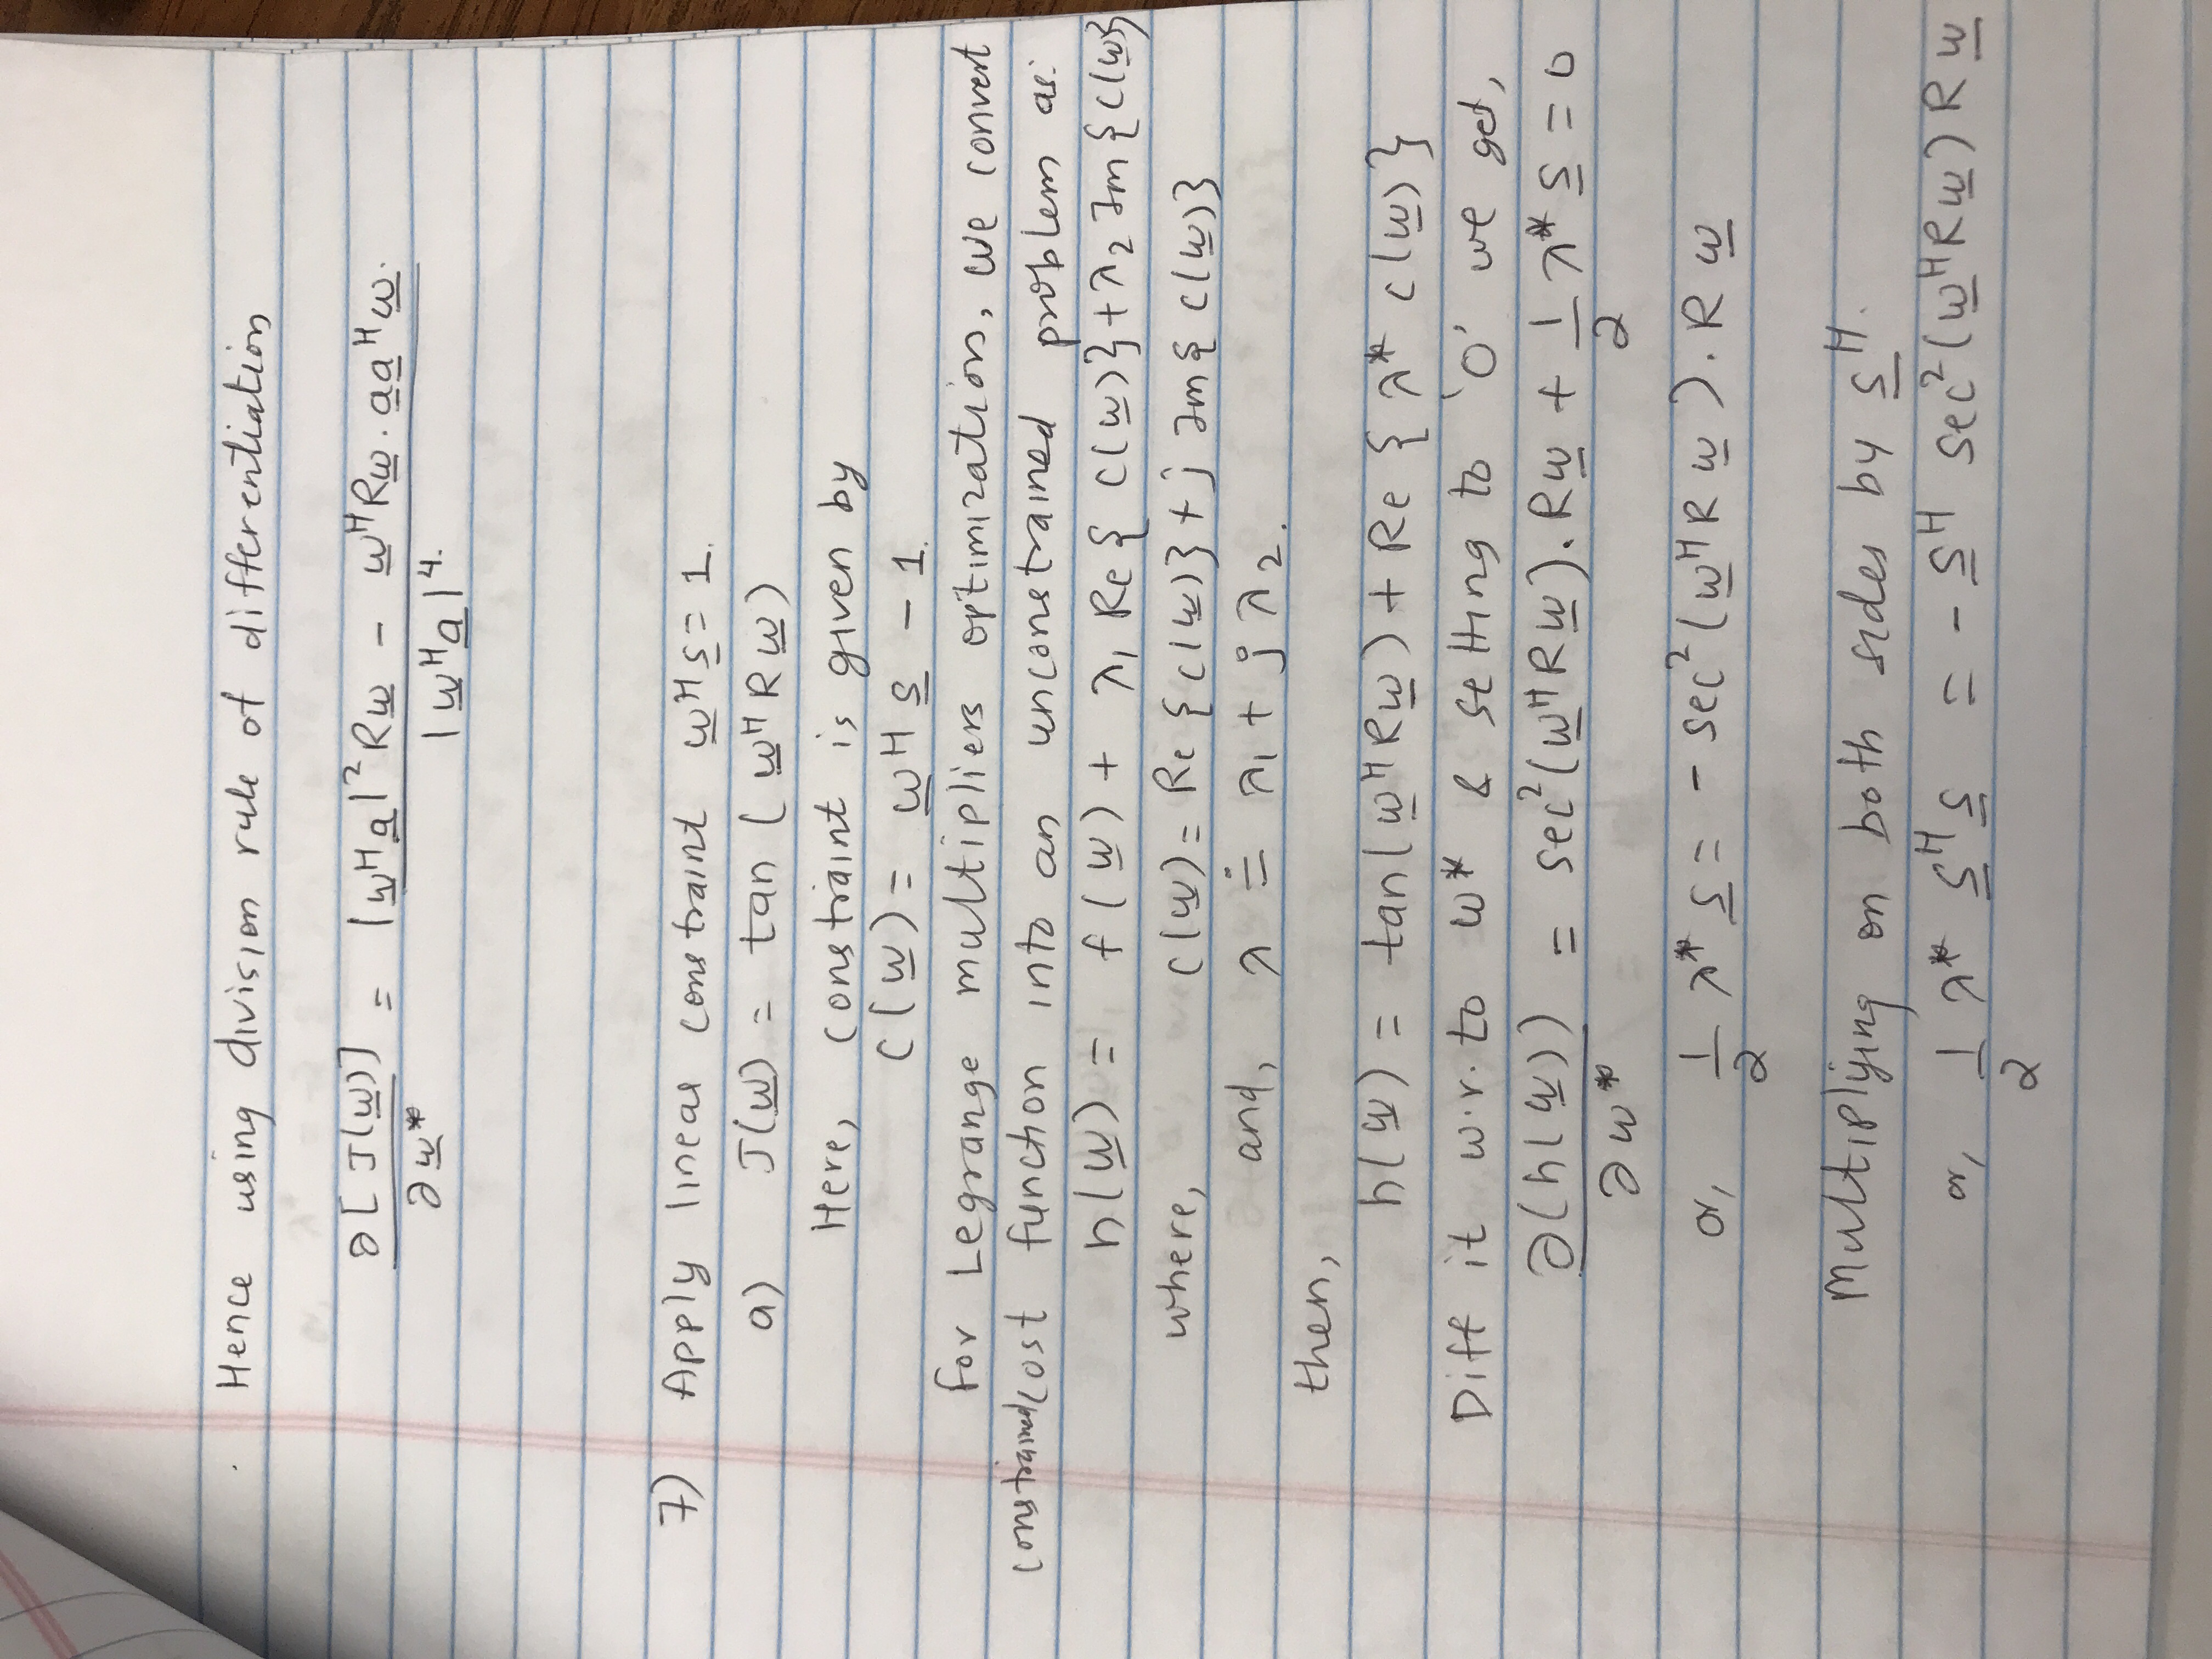 Hence using division rule of differentiation
∂[J(w̲)] / ∂w̲* = |w̲ᴴa̲|² Rw̲ − w̲ᴴRw̲ . a̲a̲ᴴw̲. / |w̲ᴴa̲|⁴.
7) Apply linear constraint w̲ᴴs̲ = 1.
a) J(w̲) = tan (w̲ᴴRw̲)
Here, constraint is given by
C(w̲) = w̲ᴴs̲ − 1.
for Legrange multipliers optimization, we convert
constrained cost function into an unconstrained problem as:
h(w̲) = f(w̲) + λ₁ Re{C(w̲)} + λ₂ Im{C(w̲)}
where, C(w̲) = Re{C(w̲)} + j Im{C(w̲)}
and, λ ≐ λ₁ + jλ₂.
then,
h(w̲) = tan(w̲ᴴRw̲) + Re{λ* C(w̲)}
Diff it w.r. to w* & setting to '0' we get,
∂(h(w̲)) / ∂w* = sec²(w̲ᴴRw̲). Rw̲ + 1/2 λ* s̲ = 0
or, 1/2 λ* s̲ = − sec²(w̲ᴴRw̲). Rw̲
Multiplying on both sides by s̲ᴴ.
or, 1/2 λ* s̲ᴴs̲ = − s̲ᴴ sec²(w̲ᴴRw̲) Rw̲